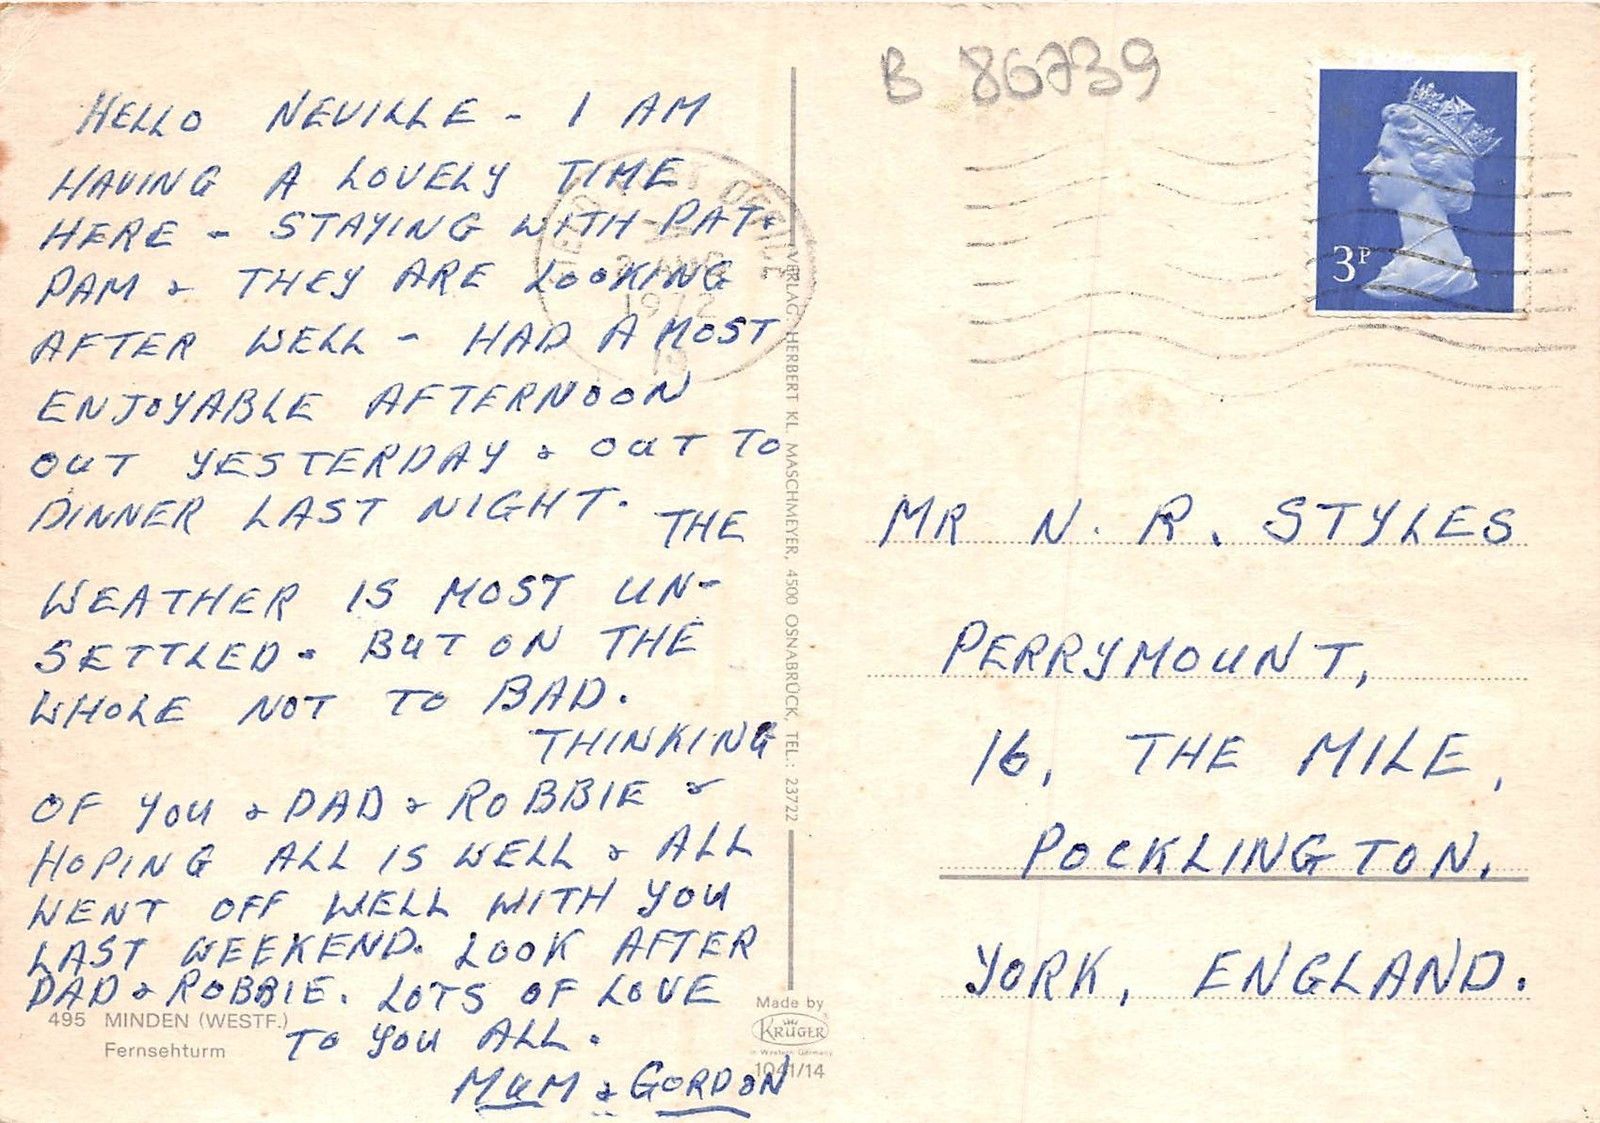 B 86739
HELLO NEVILLE - I AM
HAVING A LOVELY TIME
HERE - STAYING WITH PAT &
PAM & THEY ARE LOOKING
AFTER WELL - HAD A MOST
ENJOYABLE AFTERNOON
OUT YESTERDAY & OUT TO
DINNER LAST NIGHT. THE
WEATHER IS MOST UN-
SETTLED. BUT ON THE
WHOLE NOT TO BAD.
THINKING
OF YOU & DAD & ROBBIE &
HOPING ALL IS WELL & ALL
WENT OFF WELL WITH YOU
LAST WEEKEND. LOOK AFTER
DAD & ROBBIE. LOTS OF LOVE
TO YOU ALL.
MUM & GORDON
495 MINDEN (WESTF.)
Fernsehturm
VERLAG HERBERT KL. MASCHMEYER, 4500 OSNABRÜCK, TEL.: 23722
Made by
KRÜGER
in Western Germany
1041/14
1972
3P
MR N. R. STYLES
PERRYMOUNT,
16, THE MILE,
POCKLINGTON,
YORK, ENGLAND.